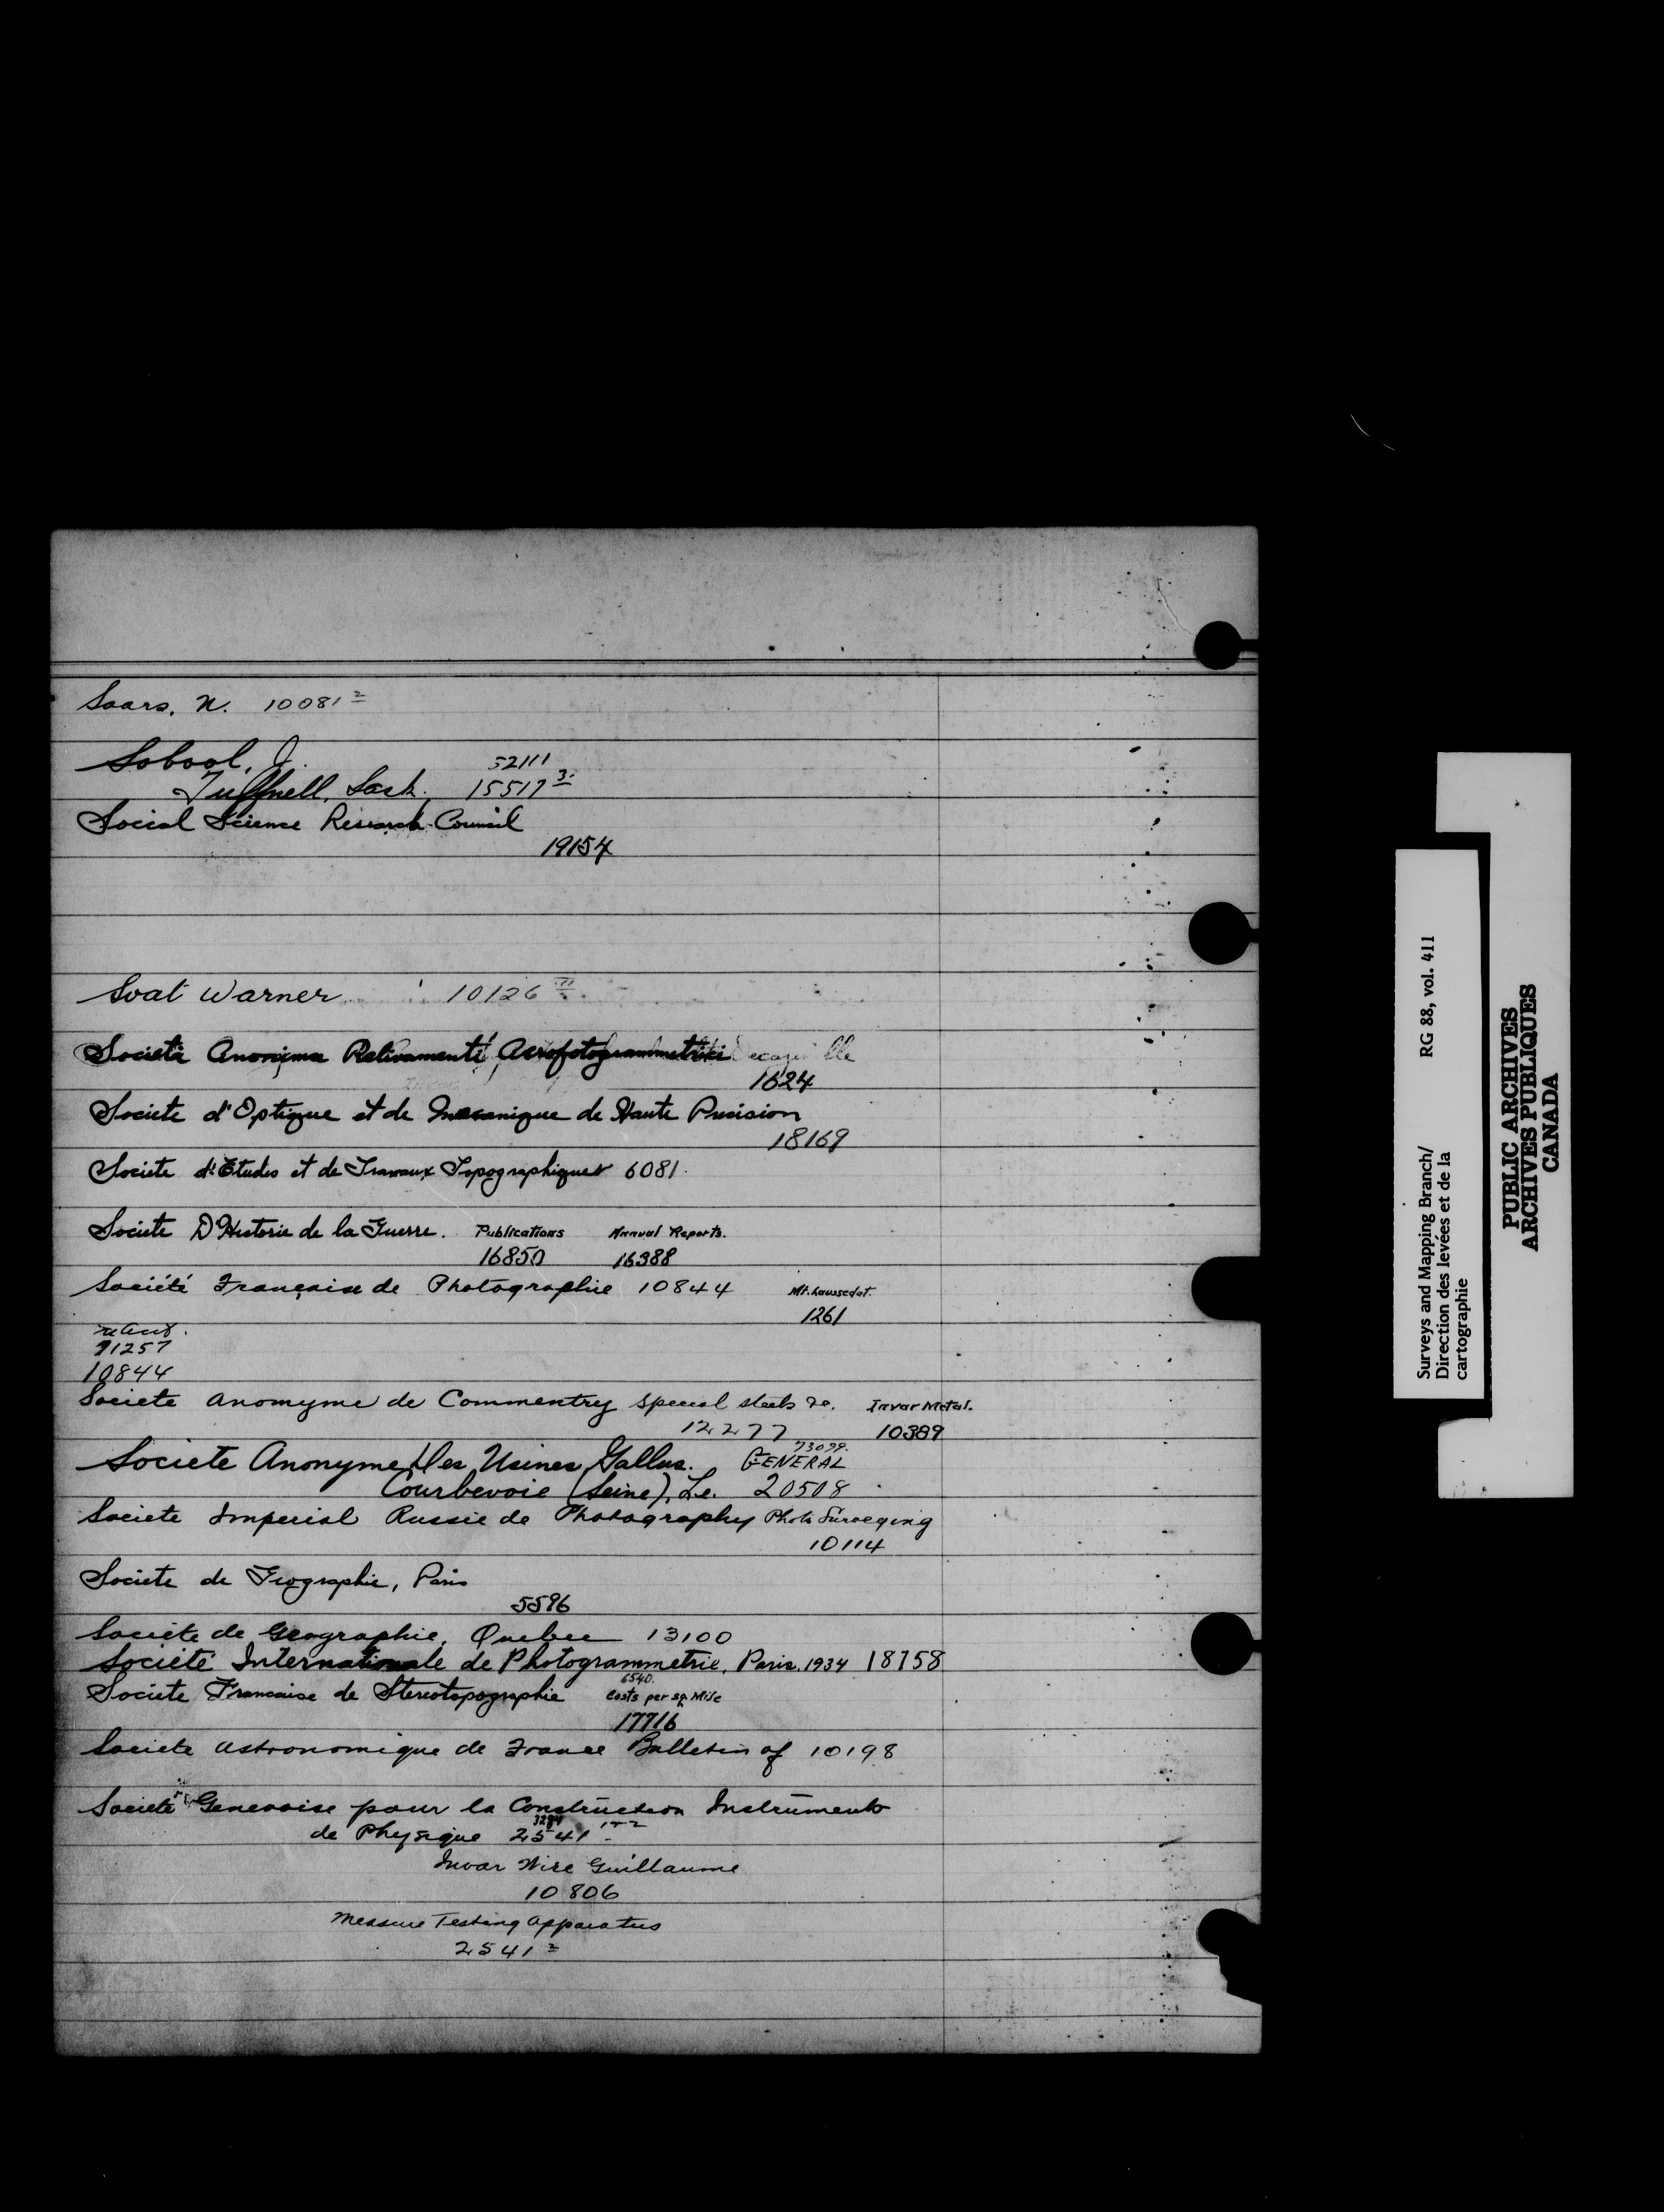 Soars, N. 10081 2
Sobool, J. 52111
Tuffnell, Sask. 15517 3
Social Science Research Council
19154
Svat Warner 10126
Societa Anonima Relivamenti Aerofotogrammetrici
1624
Societe d'Optique et de Mecanique de Haute Precision
18169
Societe d'Etudes et de Travaux Topographiques 6081
Societe D'Historie de la Guerre. Publications Annual Reports.
16850 16388
Société Française de Photographie 10844 Mt. Laussedat.
1261
11257
10844
Societe Anomyme de Commentry Special steels &c. Invar Metal.
12277 10389
73099.
Societe Anonyme Des Usines Gallus. GENERAL
Courbevoie (Seine), Le. 20508
Societe Imperial Russie de Photography Photo Surveying
10114
Societe de Geographie, Paris
5596
Societe de Geographie, Quebec 13100
Société Internationale de Photogrammetrie, Paris, 1934 18758
6540.
Societe Francaise de Stereotopographie Costs per sq. Mile
17716
Societe Astronomique de France Bulletin of 10198
Societe Genevoise pour la Construction Instruments
de Physique 2541
Invar Wire Guillaume
10806
Measure Testing Apparatus
2541 2
Surveys and Mapping Branch/ RG 88, vol. 411
Direction des levées et de la
cartographie
PUBLIC ARCHIVES
ARCHIVES PUBLIQUES
CANADA